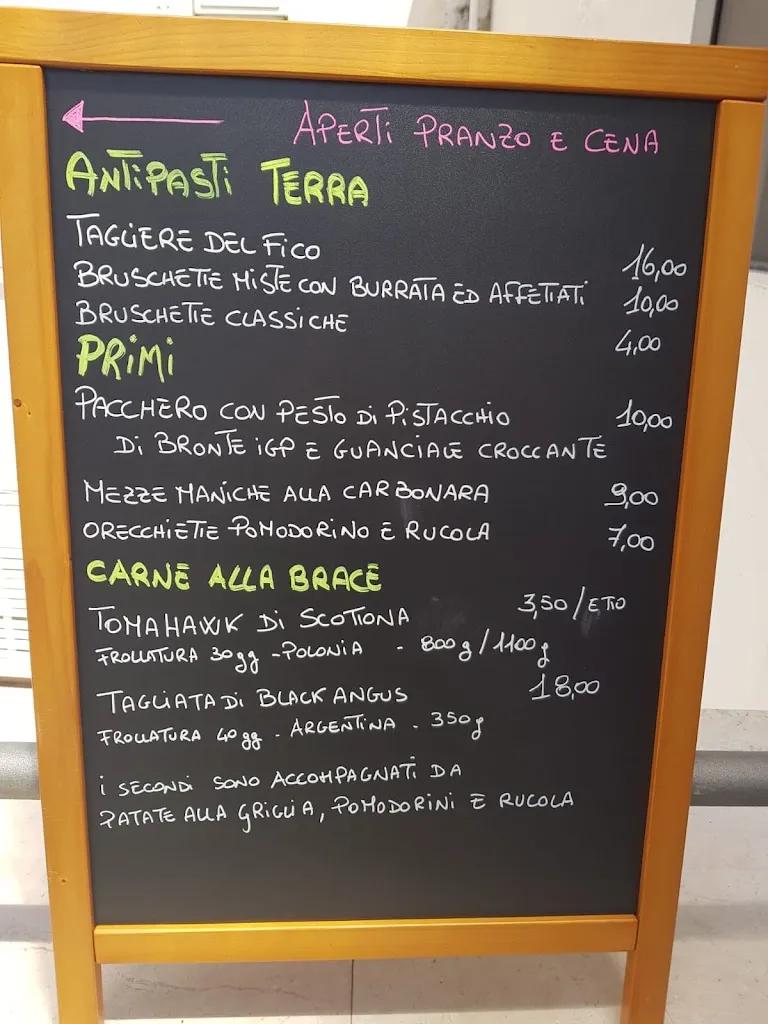 APERTI PRANZO E CENA
ANTIPASTI TERRA
TAGLIERE DEL FICO 16,00
BRUSCHETTE MISTE CON BURRATA ED AFFETTATI 10,00
BRUSCHETTE CLASSICHE 4,00
PRIMI
PACCHERO CON PESTO DI PISTACCHIO 10,00
DI BRONTE IGP E GUANCIALE CROCCANTE
MEZZE MANICHE ALLA CARBONARA 9,00
ORECCHIETTE POMODORINO E RUCOLA 7,00
CARNE ALLA BRACE
TOMAHAWK DI SCOTTONA 3,50/ETTO
FROLLATURA 30gg - POLONIA - 800g/1100g
TAGLIATA DI BLACK ANGUS 18,00
FROLLATURA 40gg - ARGENTINA - 350g
I SECONDI SONO ACCOMPAGNATI DA
PATATE ALLA GRIGLIA, POMODORINI E RUCOLA